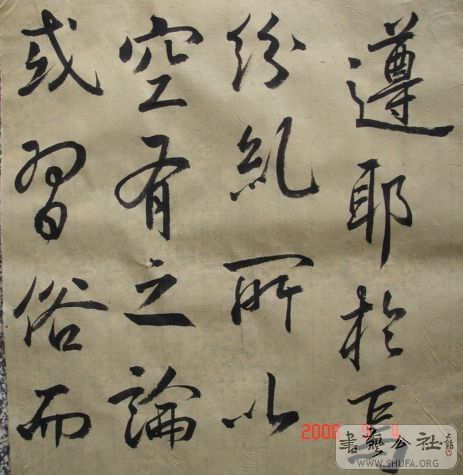 遵耶於焉
紛糺所以
空有之論
或習俗而
書藝公社
WWW.SHUFA.ORG